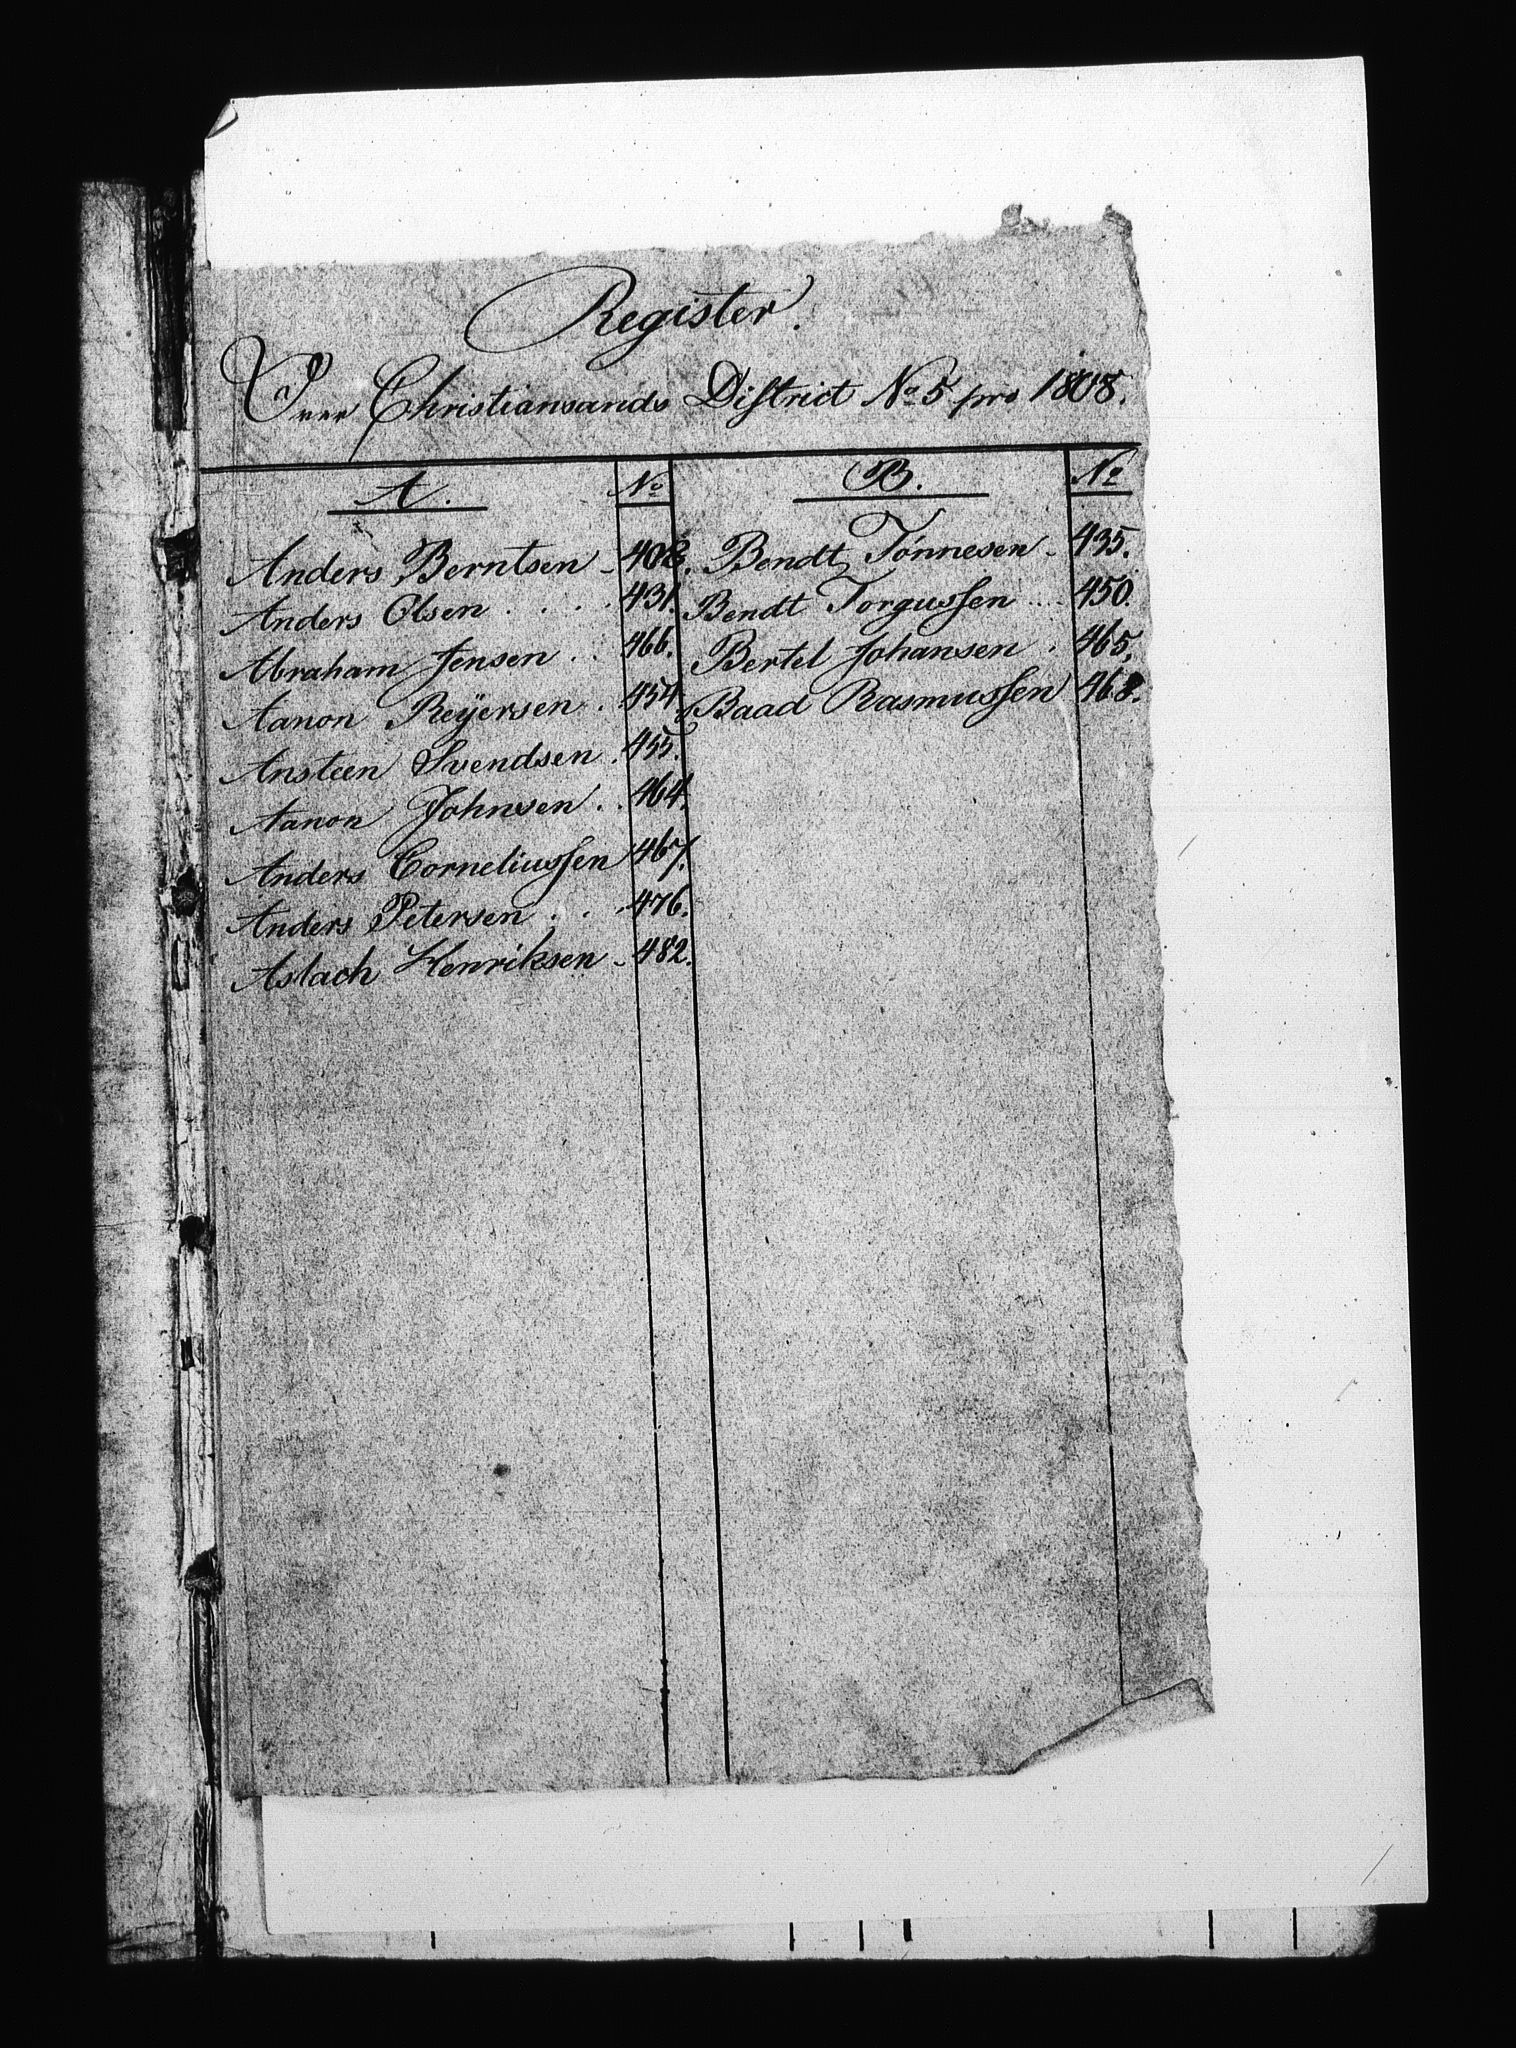 Register.
Over Christiansands District No 5 pro 1808.
A. No
Anders Berntsen - 408.
Anders Olsen . . . . 431.
Abraham Jensen . . 466.
Aanon Reÿersen . 454.
Ansteen Svendsen . 455.
Aanon Johnsen . . 464.
Anders Corneliussen 467.
Anders Petersen . . . 476.
Aslach Henriksen - 482.
B. No
Bendt Tønnesen - 435.
Bendt Torgussen .... 450.
Bertel Johansen . 465.
Baad Rasmussen 468.